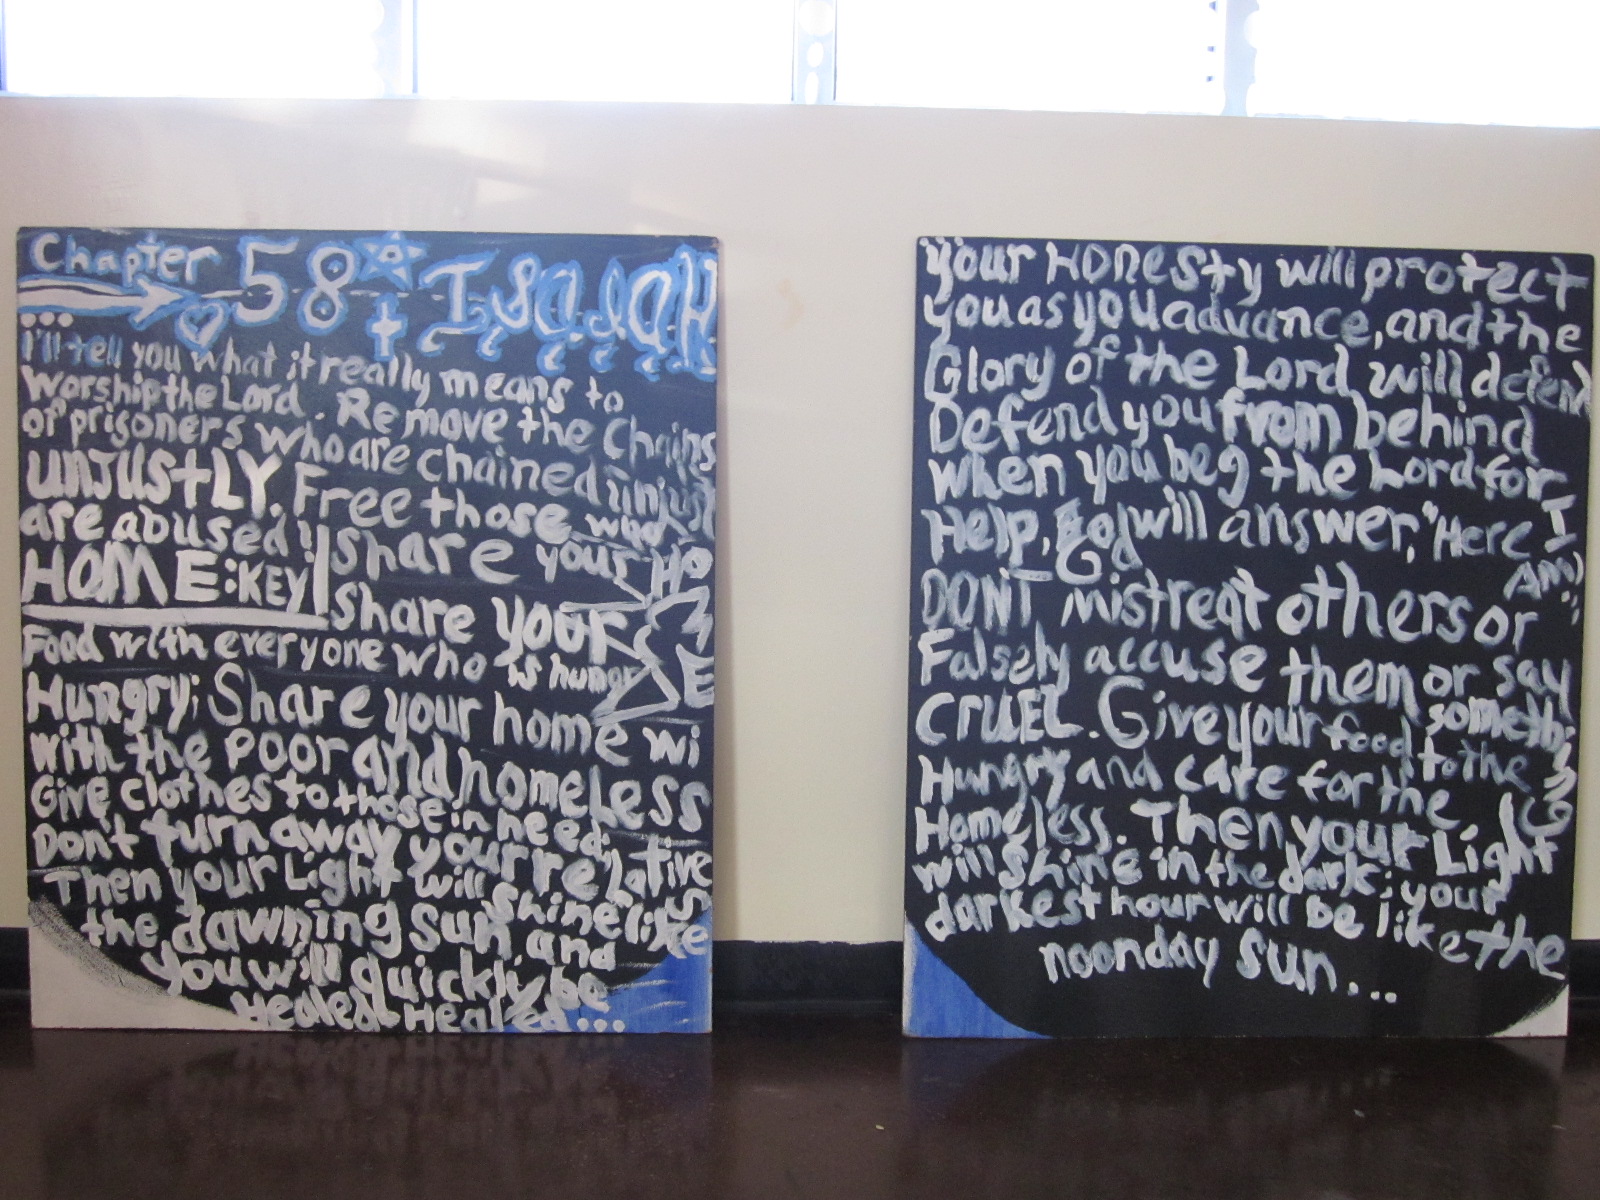 Chapter 58 Isaiah
...
I'll tell you what it really means to
worship the Lord. Remove the Chains
of prisoners who are chained unjust
UNJUStLY. Free those who
are abused! Share your HO
ME
HOME:KEY Share your
Food with everyone who is hungr
Hungry; Share your home wi
with the poor and homeLess
Give clothes to those in need;
Don't turn away your relatives
Then your Light will Shine like
the dawning Sun, and
you will quickly be
Healed Healed...
your HONesty will protect
you as you advance, and the
Glory of the Lord will defend
Defend you from behind
when you beg the Lord for
Help, God will answer, "Here I
AM!
DON'T mistreat others or
Falsely accuse them or say
CRUEL. Give your food to the
something
Hungry and care for the
Homeless. Then your Light
will Shine in the dark; your
darkest hour will be like the
noonday Sun...